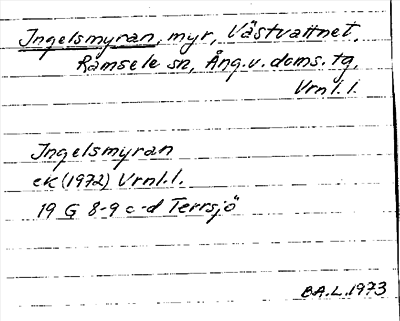 Ingelsmyran, myr, Västvattnet,
Ramsele sn, Ång.v. doms. tg,
Vrnl.l.
Ingelsmyran
ek (1972) Vrnl.l.
19 G 8-9 c-d Terrsjö
BA.L.1973